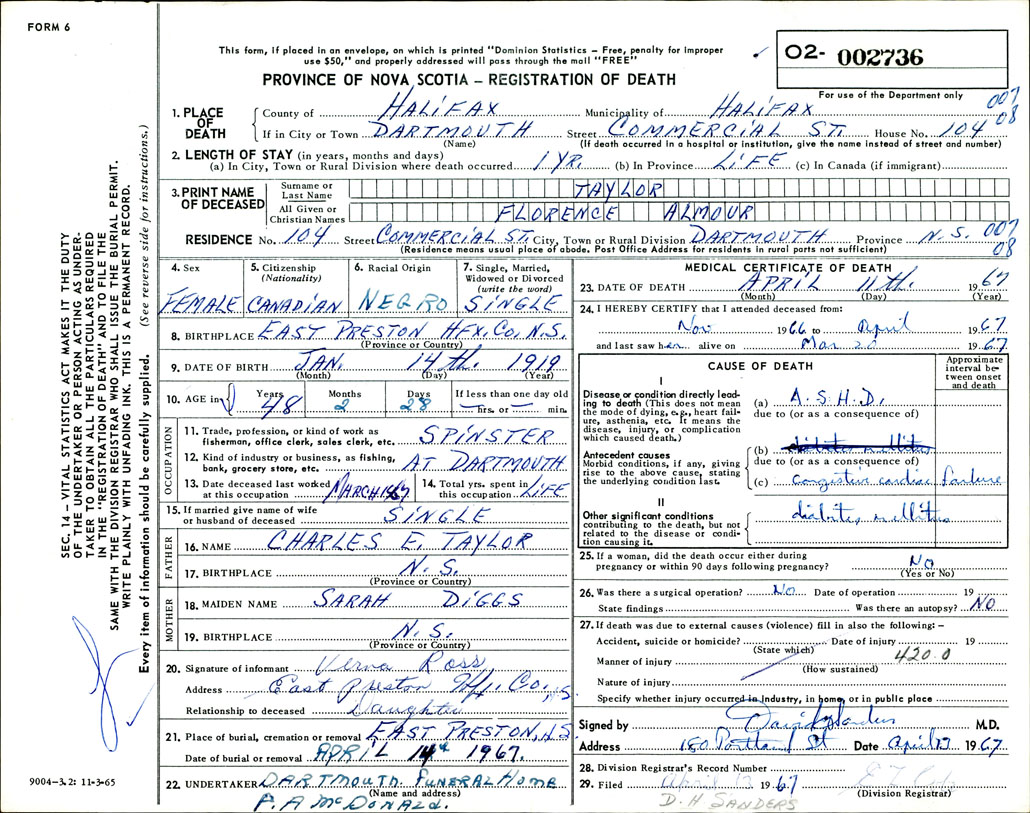 FORM 6
This form, if placed in an envelope, on which is printed "Dominion Statistics – Free, penalty for improper
use $50," and properly addressed will pass through the mail "FREE"
PROVINCE OF NOVA SCOTIA – REGISTRATION OF DEATH
O2- 002736
For use of the Department only
007
08
1. PLACE OF DEATH
County of HALIFAX Municipality of HALIFAX
If in City or Town DARTMOUTH Street COMMERCIAL ST. House No. 104
(Name) (If death occurred in a hospital or institution, give the name instead of street and number)
2. LENGTH OF STAY (in years, months and days)
(a) In City, Town or Rural Division where death occurred 1 YR. (b) In Province LIFE (c) In Canada (if immigrant)
3. PRINT NAME OF DECEASED
Surname or Last Name TAYLOR
All Given or Christian Names FLORENCE ALMOUR
RESIDENCE No. 104 Street COMMERCIAL ST. City, Town or Rural Division DARTMOUTH Province N.S. 007
(Residence means usual place of abode. Post Office Address for residents in rural parts not sufficient) 08
4. Sex FEMALE
5. Citizenship (Nationality) CANADIAN
6. Racial Origin NEGRO
7. Single, Married, Widowed or Divorced (write the word) SINGLE
8. BIRTHPLACE EAST PRESTON HFX. CO. N.S.
(Province or Country)
9. DATE OF BIRTH JAN. 14th. 1919
(Month) (Day) (Year)
10. AGE in Years 48 Months 2 Days 28 If less than one day old — hrs. or — min.
OCCUPATION
11. Trade, profession, or kind of work as fisherman, office clerk, sales clerk, etc. SPINSTER
12. Kind of industry or business, as fishing, bank, grocery store, etc. AT DARTMOUTH
13. Date deceased last worked at this occupation MARCH 1967
14. Total yrs. spent in this occupation LIFE
15. If married give name of wife or husband of deceased SINGLE
FATHER
16. NAME CHARLES E. TAYLOR
17. BIRTHPLACE N.S.
(Province or Country)
MOTHER
18. MAIDEN NAME SARAH DIGGS
19. BIRTHPLACE N.S.
(Province or Country)
20. Signature of informant Verna Ross
Address East Preston Hfx. Co., N.S.
Relationship to deceased Daughter
21. Place of burial, cremation or removal EAST PRESTON, N.S.
Date of burial or removal APRIL 14th 1967.
22. UNDERTAKER DARTMOUTH FUNERAL HOME
(Name and address)
P. A McDONALD.
MEDICAL CERTIFICATE OF DEATH
23. DATE OF DEATH APRIL 11th. 1967
(Month) (Day) (Year)
24. I HEREBY CERTIFY that I attended deceased from:
Nov 1966 to April 1967
and last saw her alive on Mar 20 1967
CAUSE OF DEATH
Approximate interval between onset and death
I
Disease or condition directly leading to death (This does not mean the mode of dying, e.g., heart failure, asthenia, etc. It means the disease, injury, or complication which caused death.)
(a) A.S.H.D.
due to (or as a consequence of)
Antecedent causes
Morbid conditions, if any, giving rise to the above cause, stating the underlying condition last.
(b) diabetes mellitus
due to (or as a consequence of)
(c) Congestive cardiac failure
II
Other significant conditions contributing to the death, but not related to the disease or condition causing it.
diabetes mellitus
25. If a woman, did the death occur either during pregnancy or within 90 days following pregnancy? No
(Yes or No)
26. Was there a surgical operation? No Date of operation 19
State findings Was there an autopsy? NO
27. If death was due to external causes (violence) fill in also the following: –
Accident, suicide or homicide? Date of injury 19
(State which)
420.0
Manner of injury
(How sustained)
Nature of injury
Specify whether injury occurred in Industry, in home, or in public place
Signed by David H Sanders M.D.
Address 180 Portland St Date April 13 1967
28. Division Registrar's Record Number
29. Filed April 13 1967
(Division Registrar)
D. H SANDERS
SEC. 14 – VITAL STATISTICS ACT MAKES IT THE DUTY
OF THE UNDERTAKER OR PERSON ACTING AS UNDER-
TAKER TO OBTAIN ALL THE PARTICULARS REQUIRED
IN THE "REGISTRATION OF DEATH" AND TO FILE THE
SAME WITH THE DIVISION REGISTRAR WHO SHALL ISSUE THE BURIAL PERMIT.
WRITE PLAINLY WITH UNFADING INK. THIS IS A PERMANENT RECORD.
Every item of information should be carefully supplied. (See reverse side for instructions.)
9004-3.2: 11-3-65